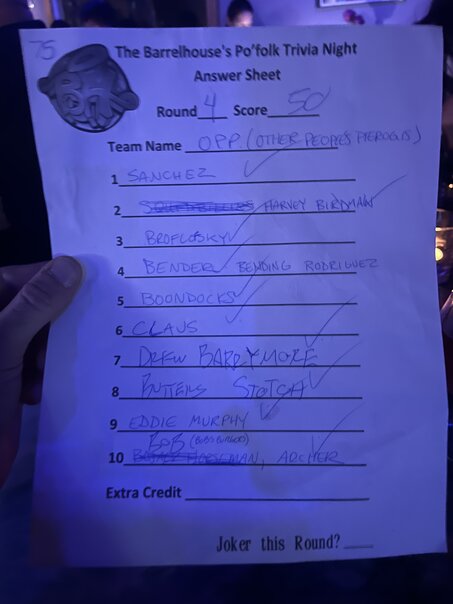 75
The Barrelhouse's Po'folk Trivia Night
Answer Sheet
Round 4 Score 50
Team Name O.P.P. (OTHER PEOPLE'S PIEROGIS)
1 SANCHEZ
2 HARVEY BIRDMAN
3 BROFLOSKY
4 BENDER BENDING RODRIGUEZ
5 BOONDOCKS
6 CLAUS
7 DREW BARRYMORE
8 BUTTERS STOTCH
9 EDDIE MURPHY
BOB (BOB'S BURGERS)
10 BOJACK HORSEMAN, ARCHER
Extra Credit
Joker this Round?